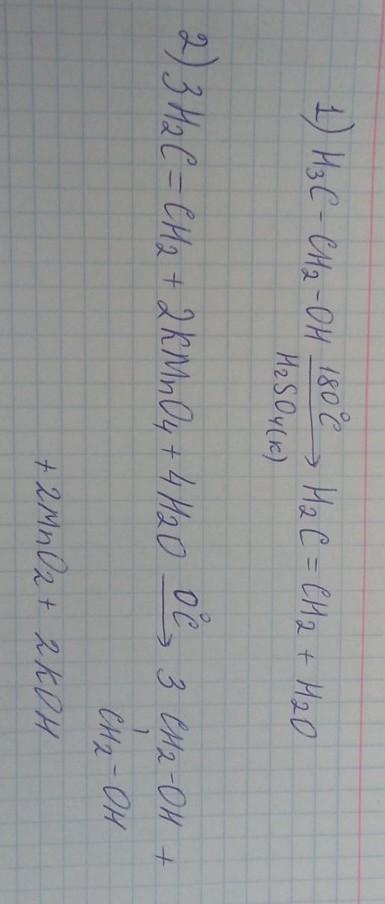 1) H₃C-CH₂-OH 180°C → H₂C=CH₂ + H₂O
H₂SO₄(к)
2) 3H₂C=CH₂ + 2KMnO₄ + 4H₂O 0°C → 3 CH₂-OH +
CH₂-OH
+ 2MnO₂ + 2KOH